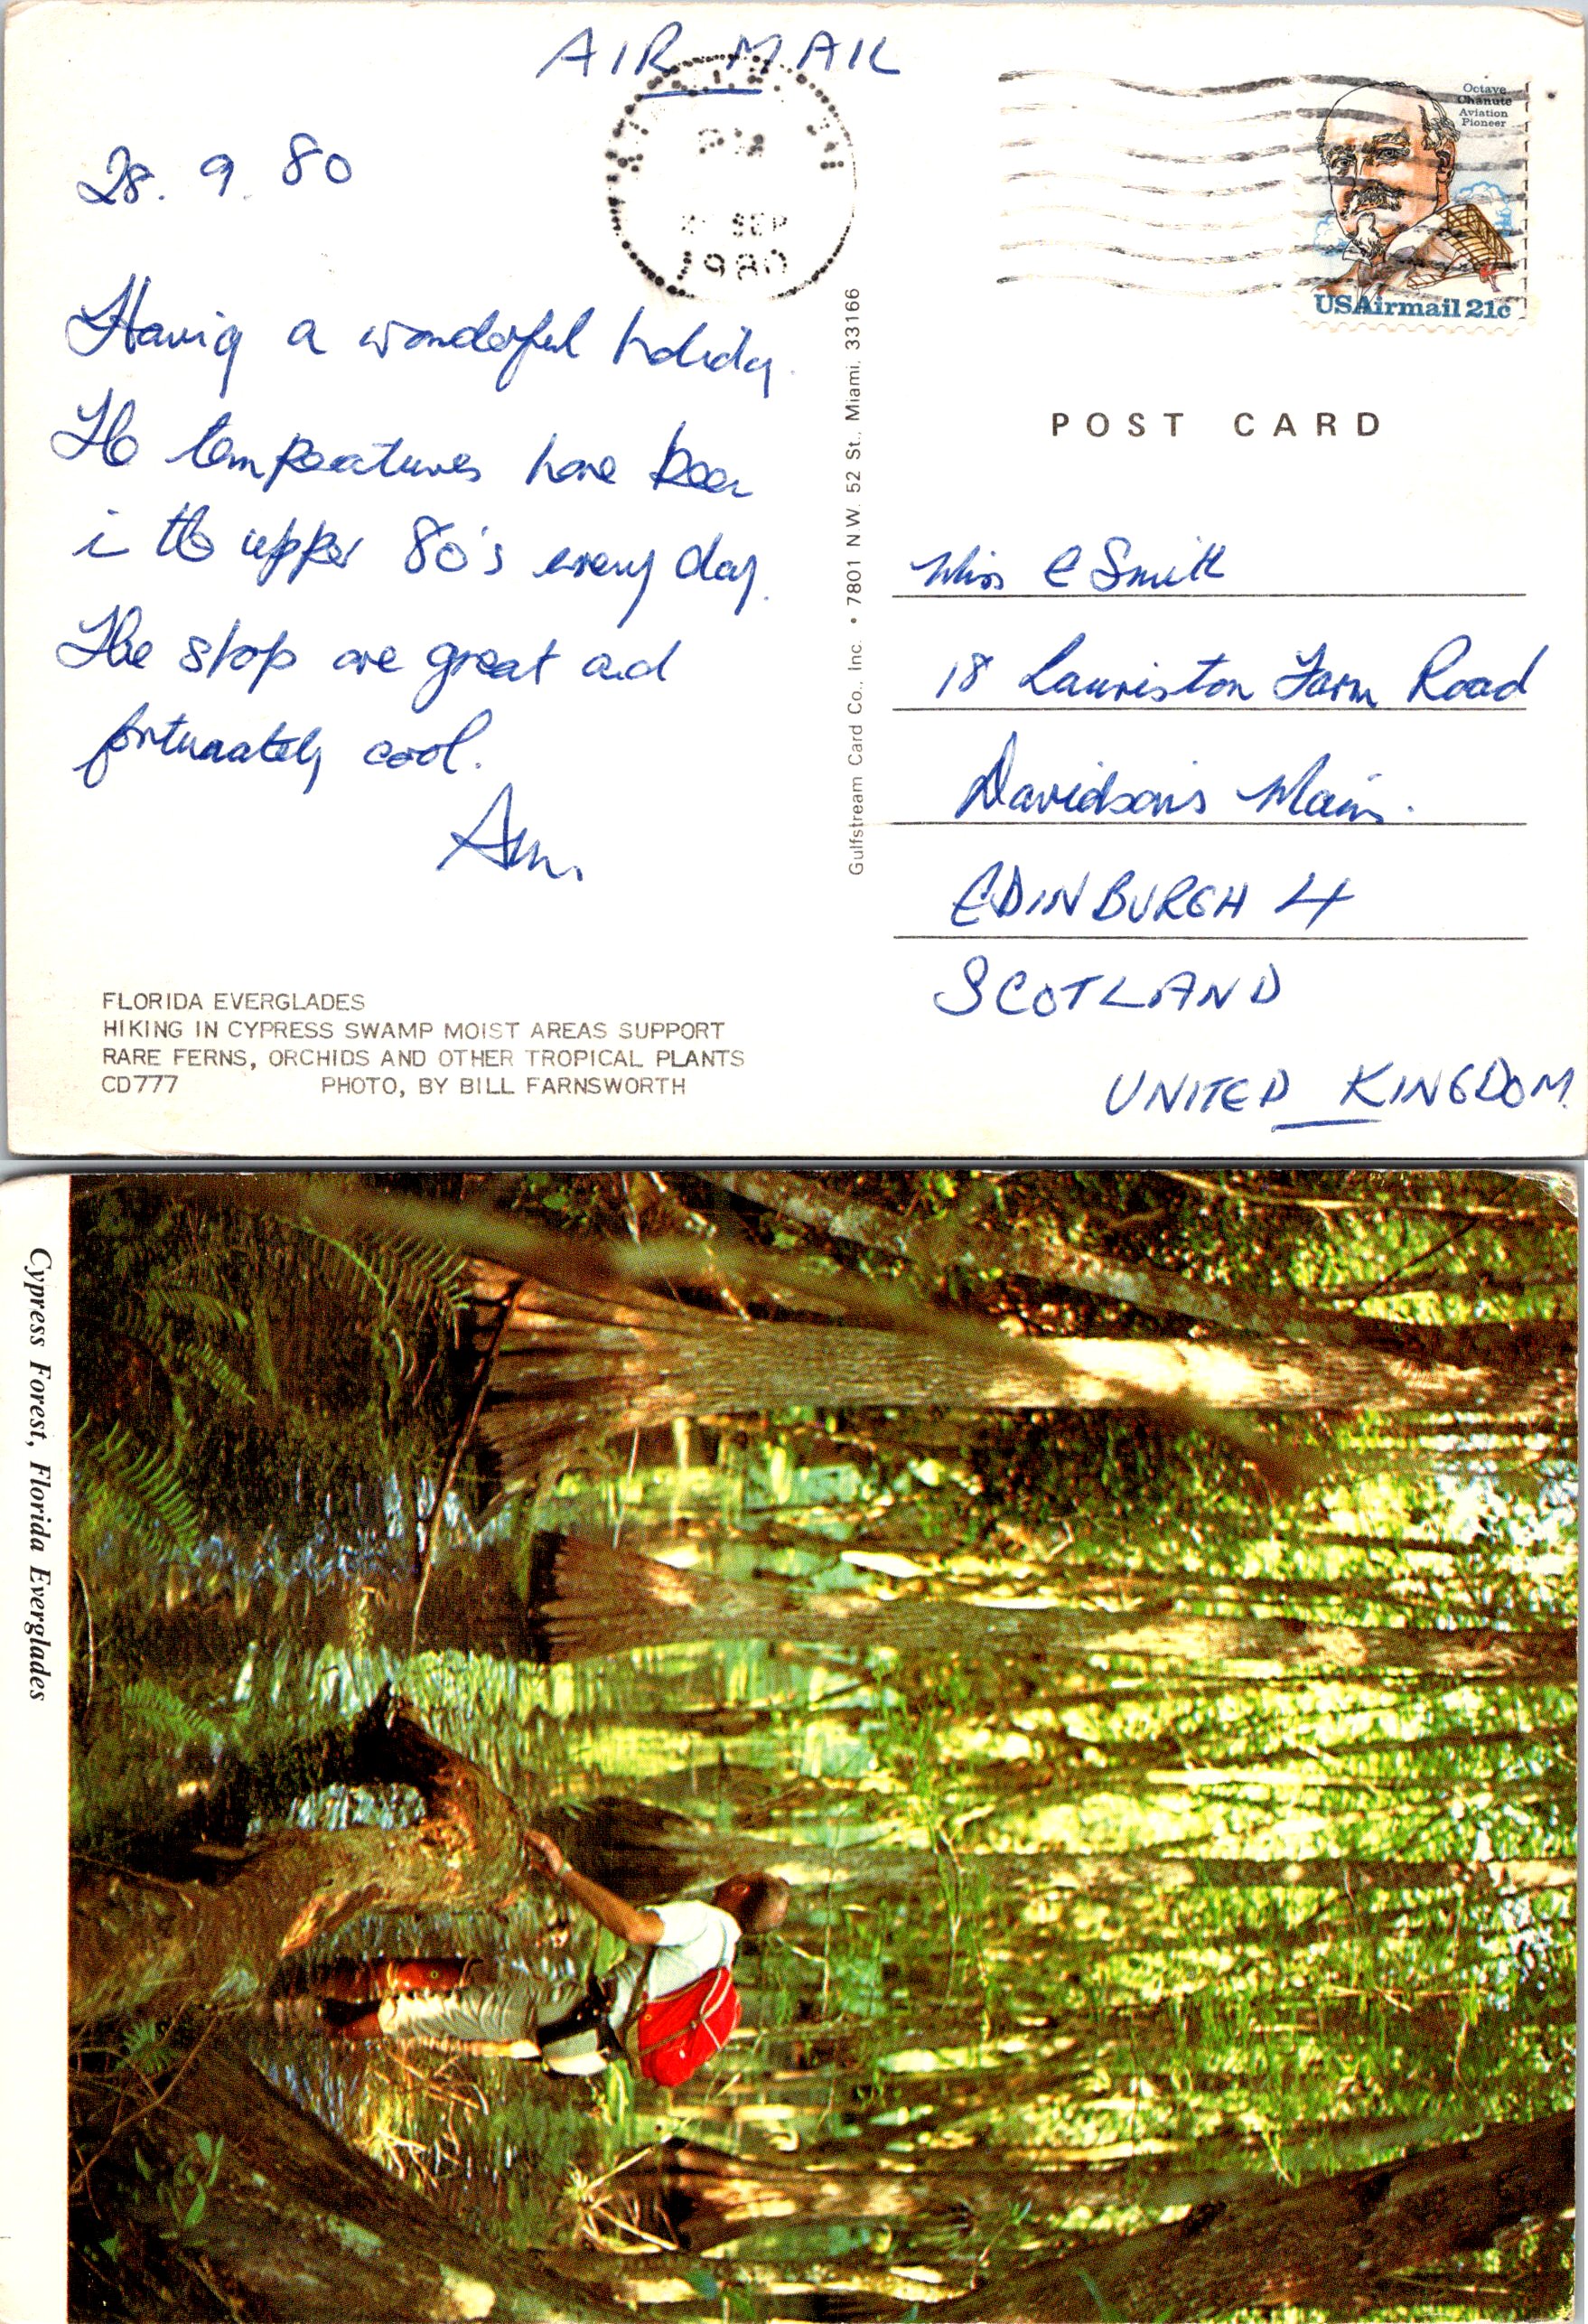 AIR MAIL
PM
SEP
1980
Octave
Chanute
Aviation
Pioneer
USAirmail 21c
28. 9. 80
Having a wonderful holiday.
The temperatures have been
in the upper 80's every day.
The shops are great and
fortunately cool.
Ann.
FLORIDA EVERGLADES
HIKING IN CYPRESS SWAMP MOIST AREAS SUPPORT
RARE FERNS, ORCHIDS AND OTHER TROPICAL PLANTS
CD777 PHOTO, BY BILL FARNSWORTH
Gulfstream Card Co., Inc. • 7801 N.W. 52 St., Miami, 33166
POST CARD
Miss E Smith
18 Lauriston Farm Road
Davidson's Mains.
EDINBURGH 4
SCOTLAND
UNITED KINGDOM.
Cypress Forest, Florida Everglades